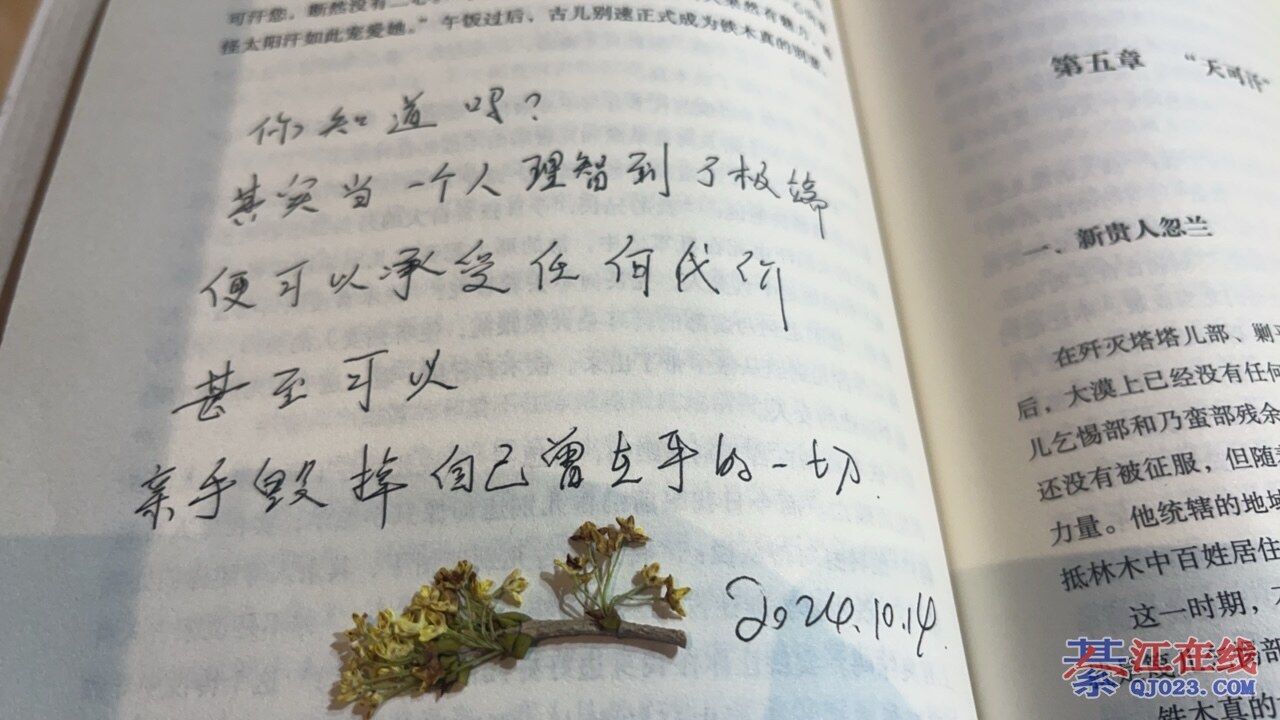 可汗您，断然没有二心
怪太阳汗如此宠爱她。”午饭过后，古儿别速正式成为铁木真的别妻。
你知道吗？
其实当一个人理智到了极端
便可以承受任何代价
甚至可以
亲手毁掉自己曾在乎的一切.
2024.10.14
第五章 “天可汗”
一、新贵人忽兰
在歼灭塔塔儿部、剿
后，大漠上已经没有任何
儿乞惕部和乃蛮部残余
还没有被征服，但随着
力量。他统辖的地域
抵林木中百姓居住
这一时期，
铁木真的
綦江在线
QJ023.COM